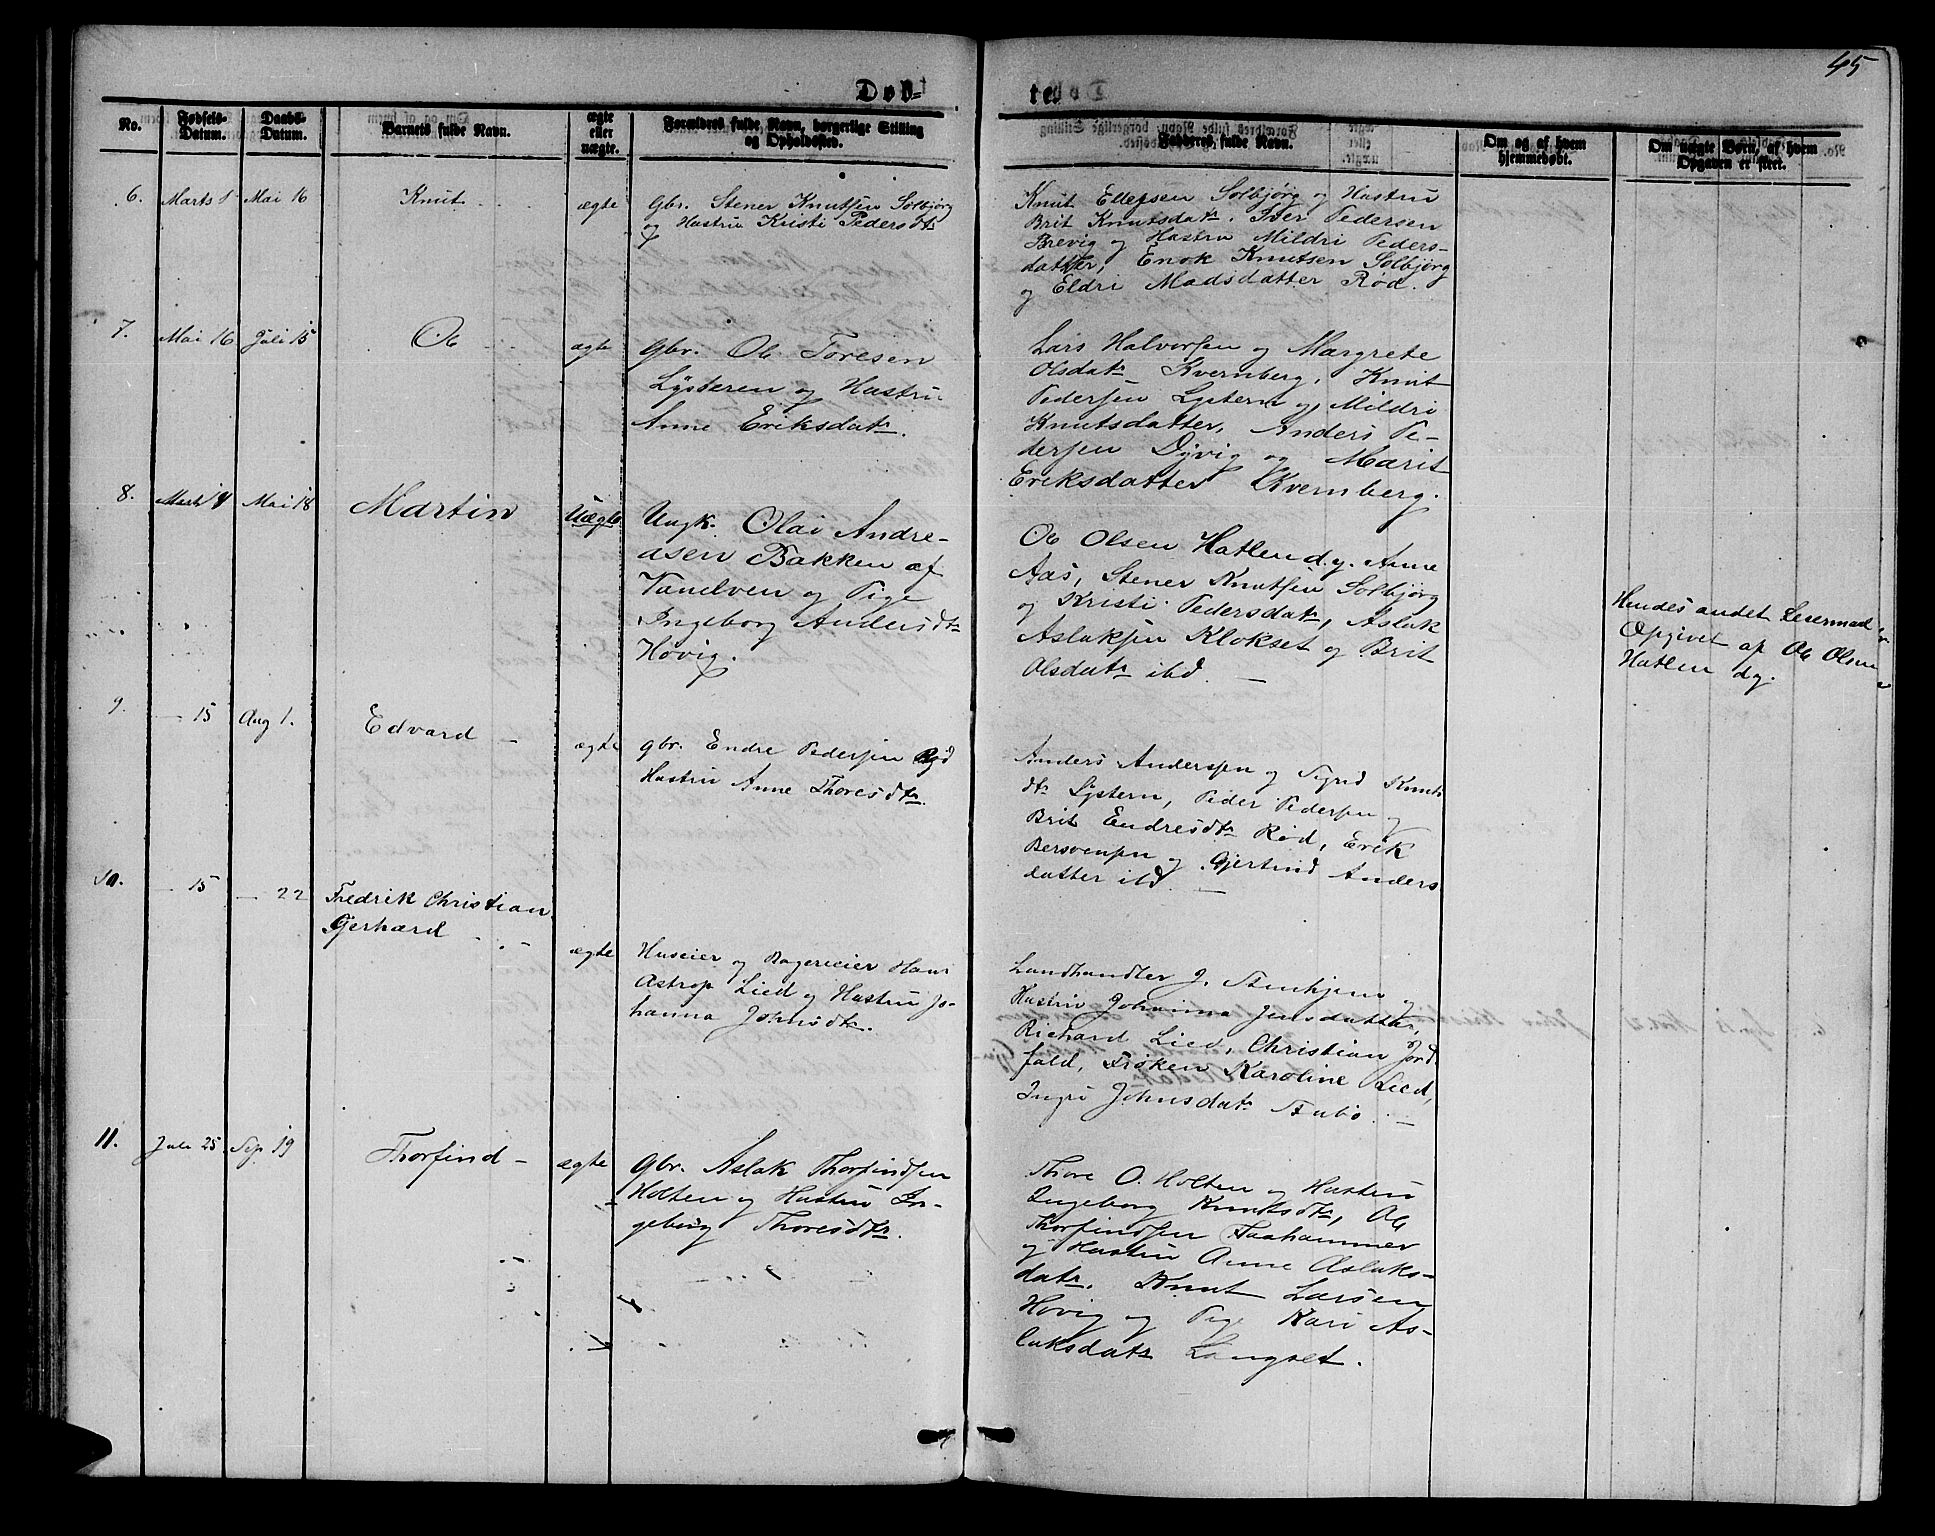 45
Døb-
te.
No.
Fødsels-
Datum.
Daabs-
Datum.
Barnets fulde Navn.
ægte
eller
uægte.
Forældres fulde Navn, borgerlige Stilling
og Opholdssted.
Fadderes fulde Navn.
Om og af hvem
hjemmedøbt.
Om uægte Børn, af hvem
Opgaven er skeet.
6. Marts Mai 16 Knut ægte
Gbr. Stener Knutsen Solbjørg
og Hustru Kristi Pedersdtr
Knut Ellefsen Solbjørg og Hustru
Brit Knutsdatr. Iver Pedersen
Brevig og Hastru Mildri Peders-
datter, Enok Knutsen Solbjørg
og Eldri Madsdatter Rød.
7. Mai 16 Juli 15 Ole ægte
Gbr. Ole Toresen
Lysteren og Hustru
Anne Eriksdatr.
Lars Halvorsen og Margrete
Olsdatr Kvernberg, Knut
Pedersen Lystern og Mildri
Knutsdatter, Anders Pe-
dersen Dyvig og Marit
Eriksdatter Kvernberg.
8. Marts Mai 18 Martin Uægte
Ungk. Olai Andre-
asen Bakken af
Vanelven og Pige
Ingeborg Andersdtr
Hovig.
Ole Olsen Hatlen d.y. Anne
Aas, Stener Knutsen Solbjørg
og Kristi Pedersdatr, Aslak
Aslaksen Klokset og Brit
Olsdatr ibd. —
Hendes andet Leiermaal
Opgivet af Ole Olsen
Hatlen dy.
9. — 15 Aug 1. Edvard — ægte
Gbr. Endre Pedersen Rød
Hustru Anne Thoresdtr.
Anders Andersen og Sigrid Knuts
dtr Lystern, Peder Pedersen og
Brit Endresdtr Rød, Erik
Bersvensen og Gjertrud Anders
datter ibd. —
10. — 15 — 22 Fredrik Christian
Gerhard — ægte
Huseier og Hans
Astrop Lied og Hustru Jo-
hanna Johnsdtr.
Landhandler J. og
Hustru Johanna Jensdatter,
Richard Lied, Christian Jord
fald, Frøken Karoline Lied,
Ingri Johnsdatr Stubø. —
11. Juli 25 Sep 19 Thorfind — ægte
Gbr. Aslak Thorfindsen
Holten og Hustru In-
geborg Thoresdtr.
Thore O. Holten og Hustru
Ingeborg Knutsdtr, Ole
Thorfindsen Faahammer
og Hustru Anne Aslaks-
datr. Knut Larsen
Hovig og Pige Kari As-
laksdatr Langset.